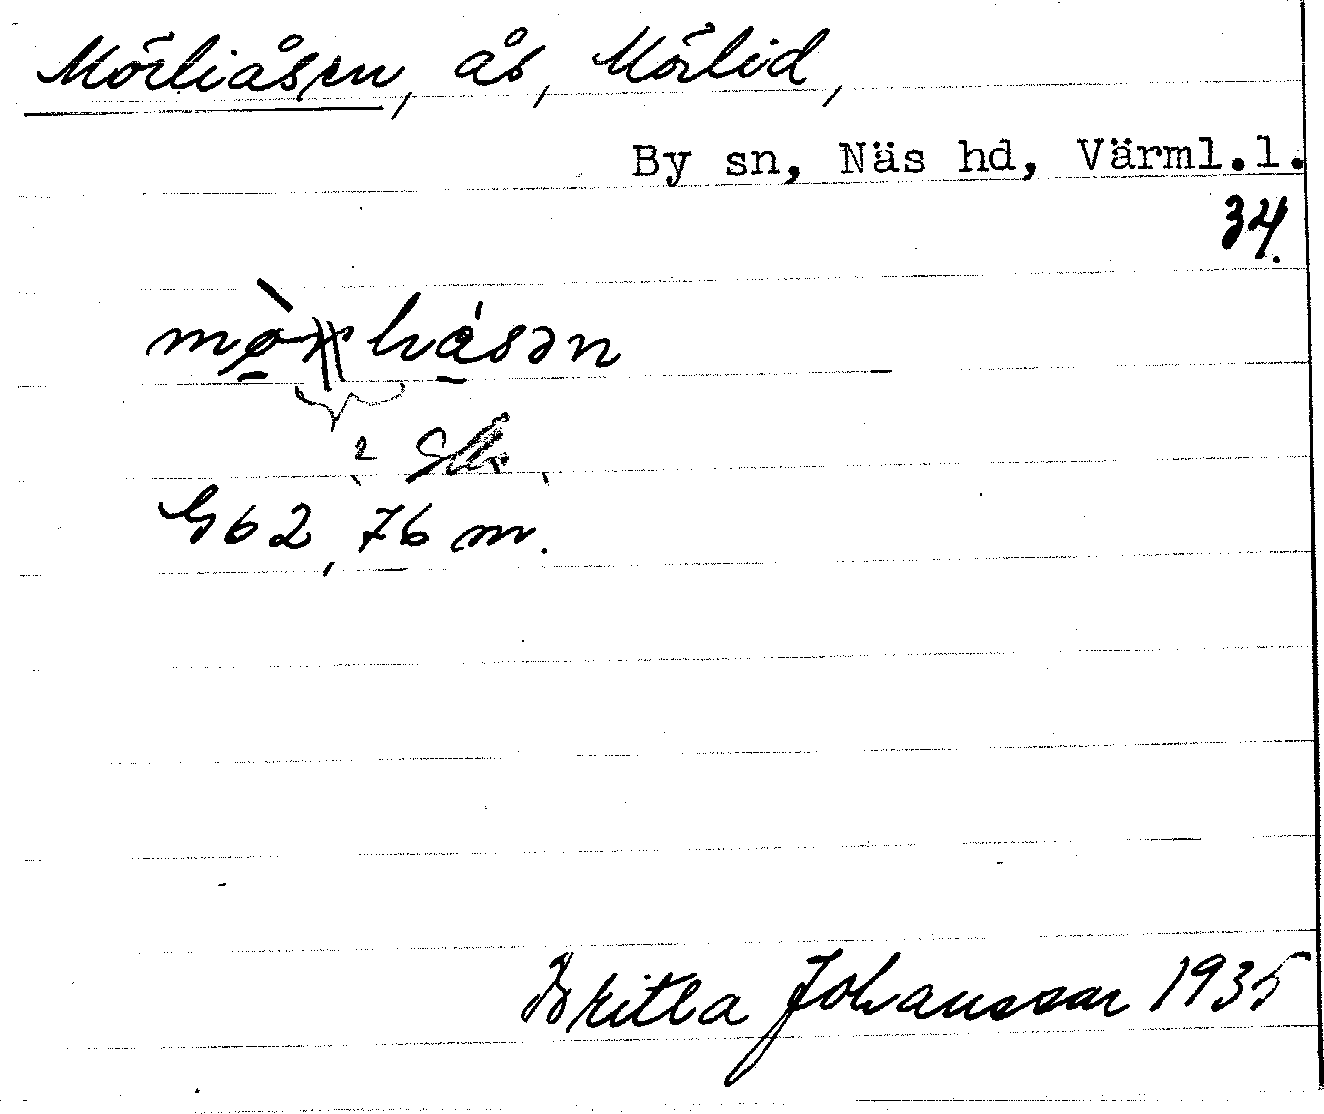 Mörliåsen, ås, Mörlid,
By sn, Näs hd, Värml.l.
34.
G62, 76 m.
Britta Johansson 1935